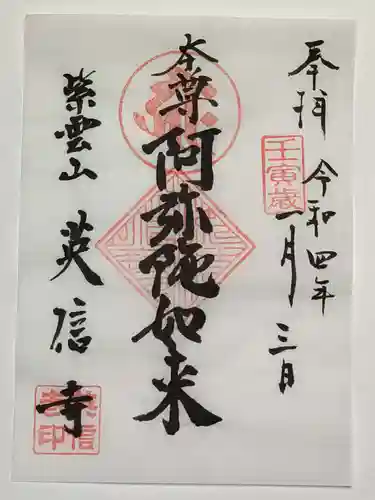 奉拝 令和四年
壬寅歳
一月三日
本尊
阿弥陀如来
紫雲山 英信寺
英信寺印